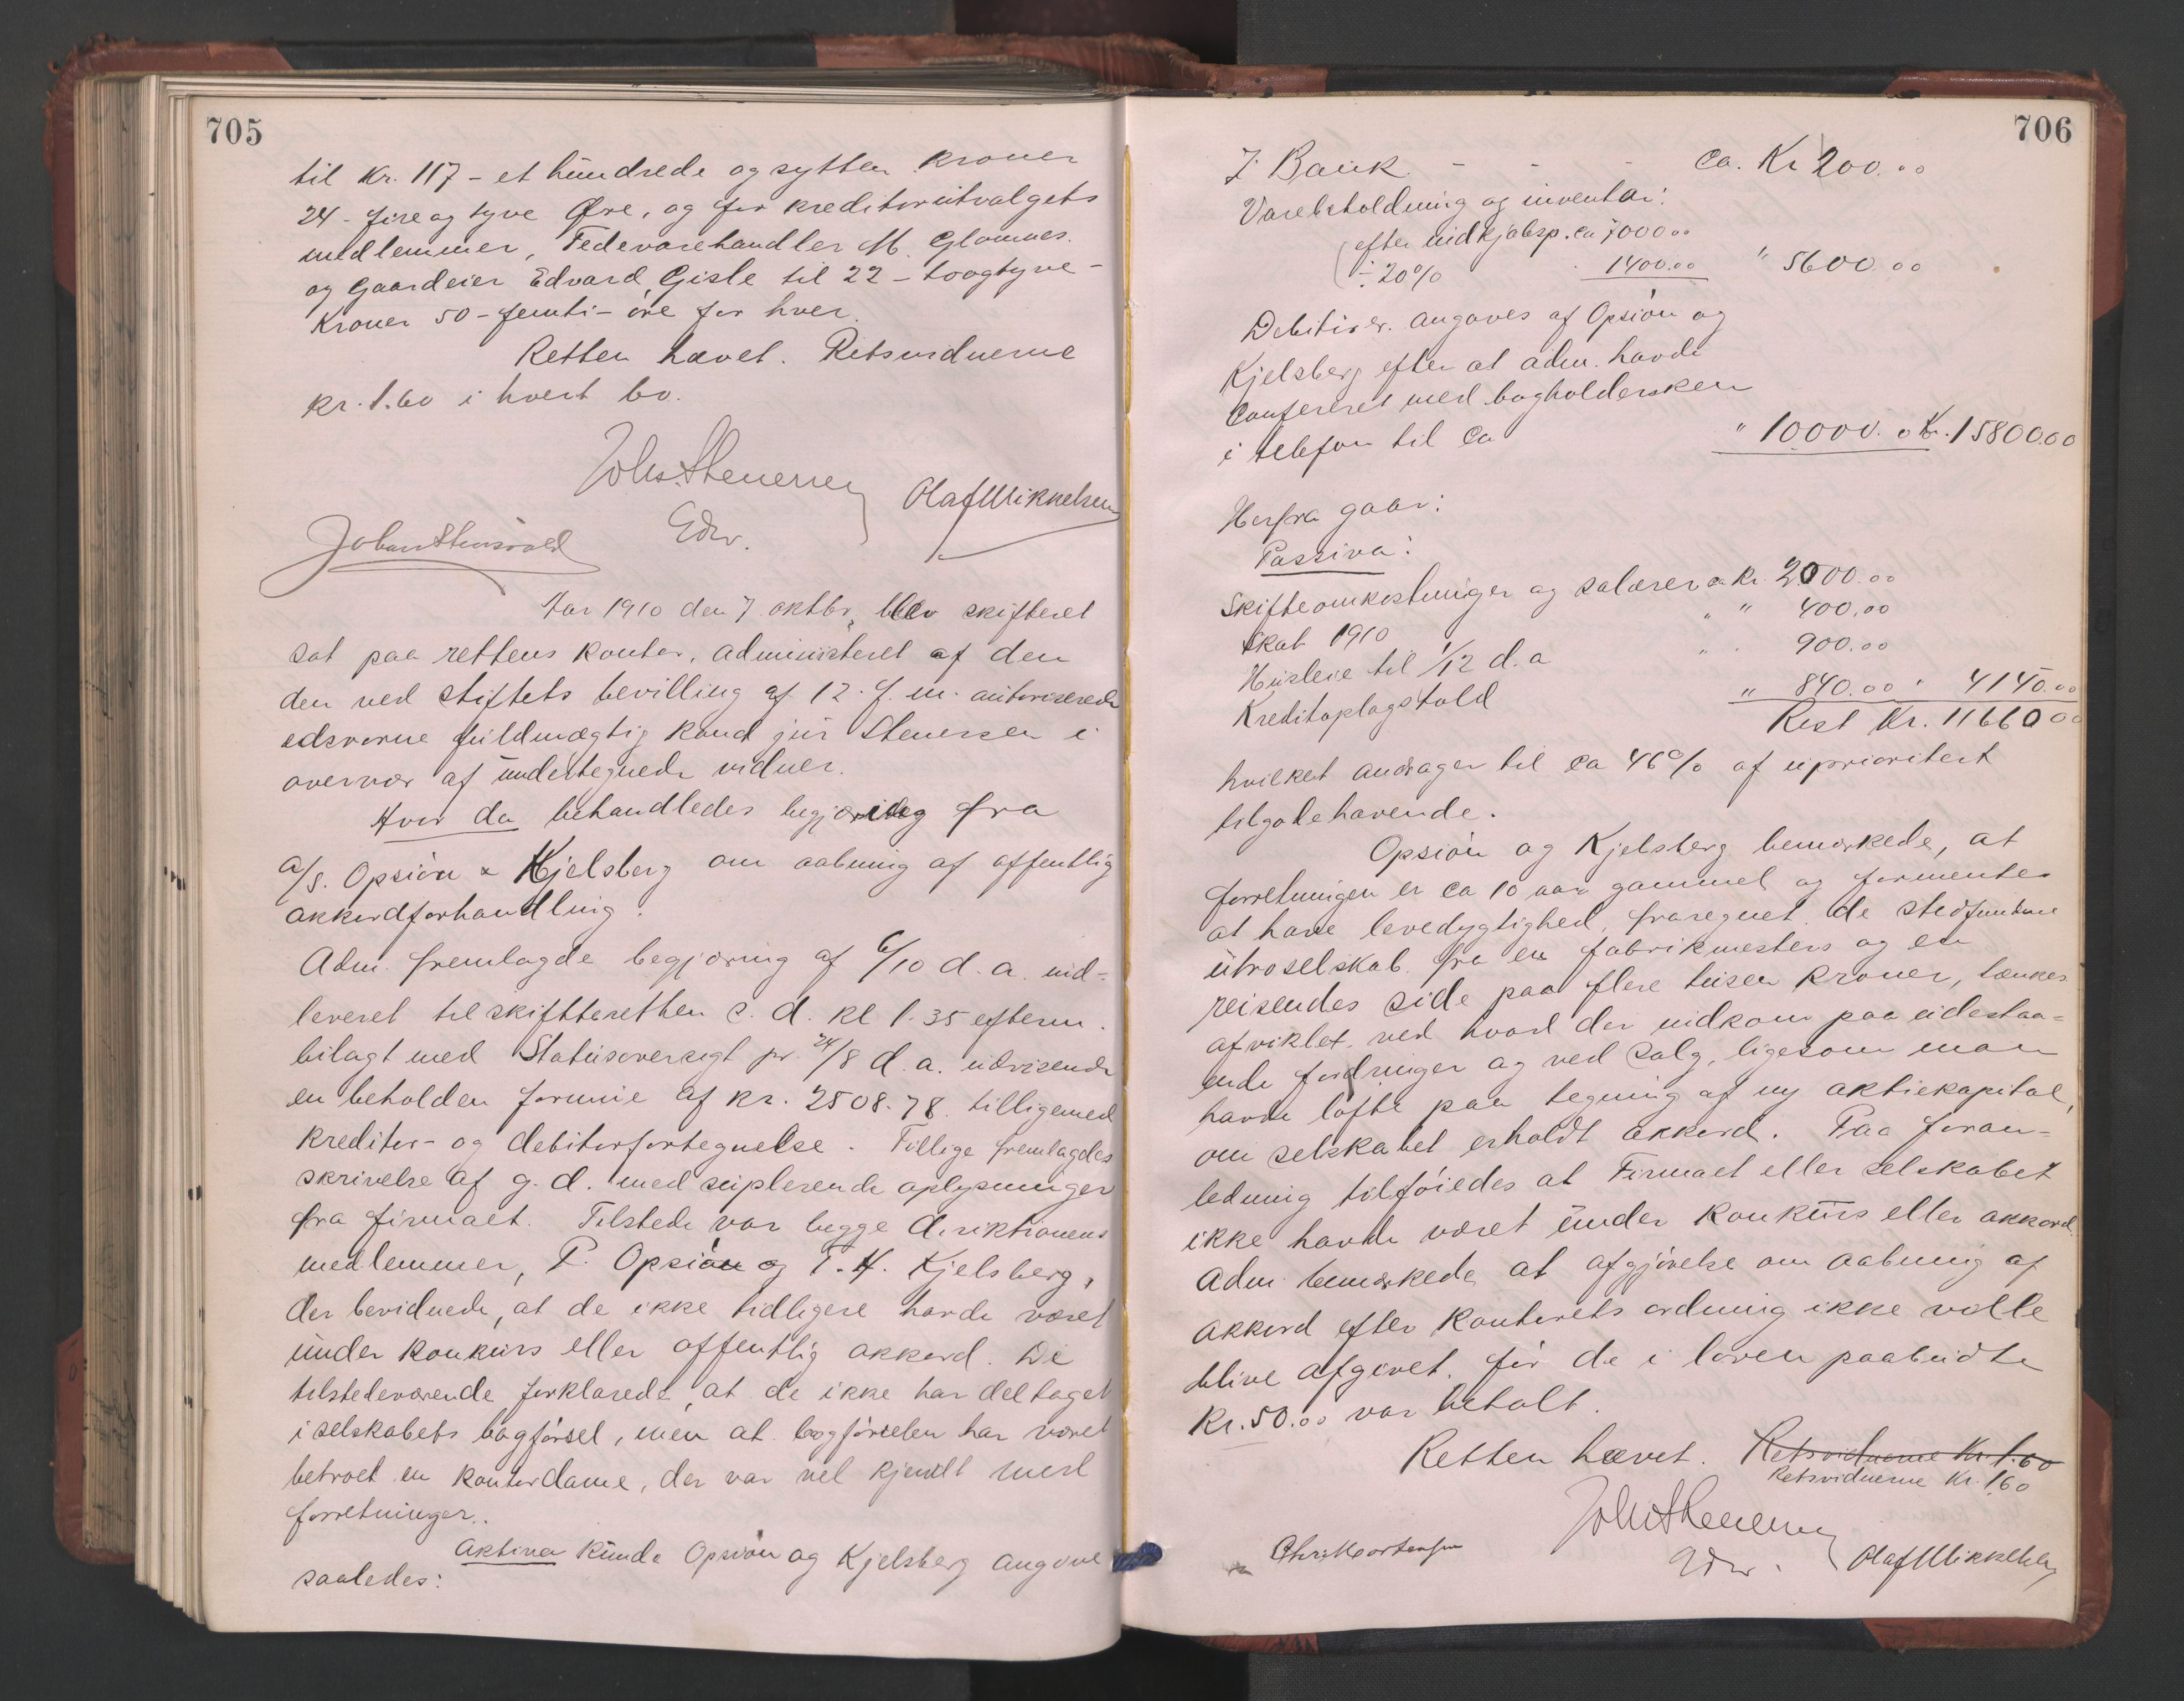 705
til Kr. 117 - et hundrede og sytten kroner
24 - fire og tyve Øre, og for kreditorutvalgets
medlemmer, Fedevarehandler M. Glomnes
og Gaardeier Edvard Gisle til 22 - toogtyve -
Kroner 50 - femti - øre for hver.
Retten hævet. Retsvidnerne
kr. 1.60 i hvert bo.
Johs. Stenersen
Olaf Mikkelsen
Edsv.
Aar 1910 den 7. oktbr, blev skifteret
sat paa rettens kontor, administreret af den
den ved stiftets bevilling af 12. f. m. autoriserede
edsvorne fuldmægtig kand jur Stenersen i
overvær af undertegnede vidner.
Hvor da behandledes begjæring fra
A/S. Opsion & Kjelsberg om aabning af offentlig
akkordforhandling.
Adm. fremlagde begjæring af 6/10 d. a. ind-
leveret til skifteretten s. d. kl 1.35 efterm.
bilagt med Statusoversigt pr. 24/8 d. a. udvisende
en beholden formue af kr. 2508.78 tilligemed
kreditor- og debitorfortegnelse. Tillige fremlagdes
skrivelse af g. d. med suplerende oplysninger
fra firmaet. Tilstede var begge direktionens
medlemmer, P. Opsion og T. H. Kjelsberg,
der bevidnede, at de ikke tidligere havde været
under konkurs eller offentlig akkord. De
tilstedeværende forklarede, at de ikke har deltaget
i selskabets bogførsel, men at bogførselen har været
betroet en kontordame, der var vel kjendt med
forretninger.
Aktiva kunde Opsion og Kjelsberg angive
saaledes:
706
I Bank - - - ca. Kr 200.00
Varebeholdning og inventar:
efter indkjøbsp. ca 7000.00
÷ 20% 1400.00 " 5600.00
Debitorer. angaves af Opsion og
Kjelsberg efter at adm. havde
Confereret med bogholdersken
i telefon til Ca " 10000.0 Kr. 15800.00
Herfra gaar:
Passiva:
Skifteomkostninger og salærer ca Kr. 2000.00
Skat 1910 " " 400.00
Husleie til 1/12 d. a " . 900.00
Kreditoplagstold " 840.00 " 4140.00
Rest Kr. 11660 00
hvilket andrager til ca 46% af uprioritert
tilgodehavende.
Opsion og Kjelsberg bemærkede, at
forretningen er ca 10 aar gammel og formentes
at have levedygtighed, fraregnet de stedfundne
utroselskab fra en fabrikmesters og en
reisendes side paa flere tusen kroner, tænkes
afviklet ved hvad der indkom paa udestaa-
ende fordringer og ved Salg, ligesom man
havde løfte paa tegning af ny aktiekapital,
om selskabet erholdt akkord. Paa foran-
ledning tilføiedes at Firmaet eller selskabet
ikke havde været under konkurs eller akkord.
Adm. bemærkede at afgjørelse om aabning af
akkord efter kontorets ordning ikke vilde
blive afgivet, før de i loven paabudte
kr. 50.00 var betalt.
Retten hævet. Retsvidnerne Kr. 1.60
Retsvidnerne Kr. 1.60
Johs Stenersen
Edsv.
Olaf Mikkelsen